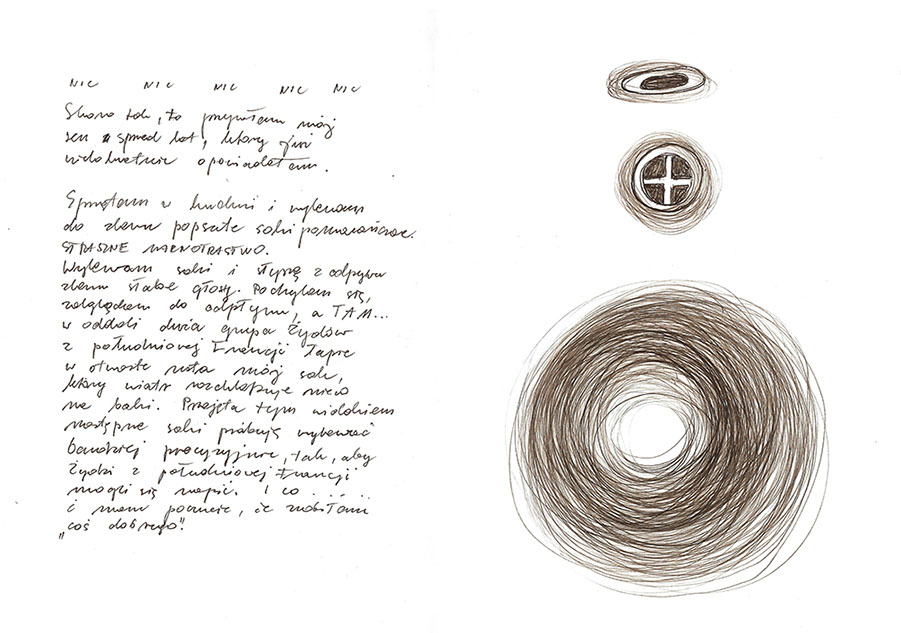 NIC NIC NIC NIC NIC
Skoro tak, to przywołam mój
sen sprzed lat, który już
wielokrotnie opowiadałam.
Sprzątam w kuchni i wylewam
do zlewu popsute soki pomarańczowe.
STRASZNE MARNOTRASTWO.
Wylewam soki i słyszę z odpływu
zlewu słabe głosy. Pochylam się,
zaglądam do odpływu, a TAM...
w oddali duża grupa Żydów
z południowej Francji łapie
w otwarte usta mój sok,
który wiatr rozchlapuje nieco
na boki. Przejęta tym widokiem
następne soki próbuję wylewać
bardziej precyzyjnie, tak, aby
Żydzi z południowej Francji
mogli się napić. I co ......
i mam poczucie, że zrobiłam
„coś dobrego".